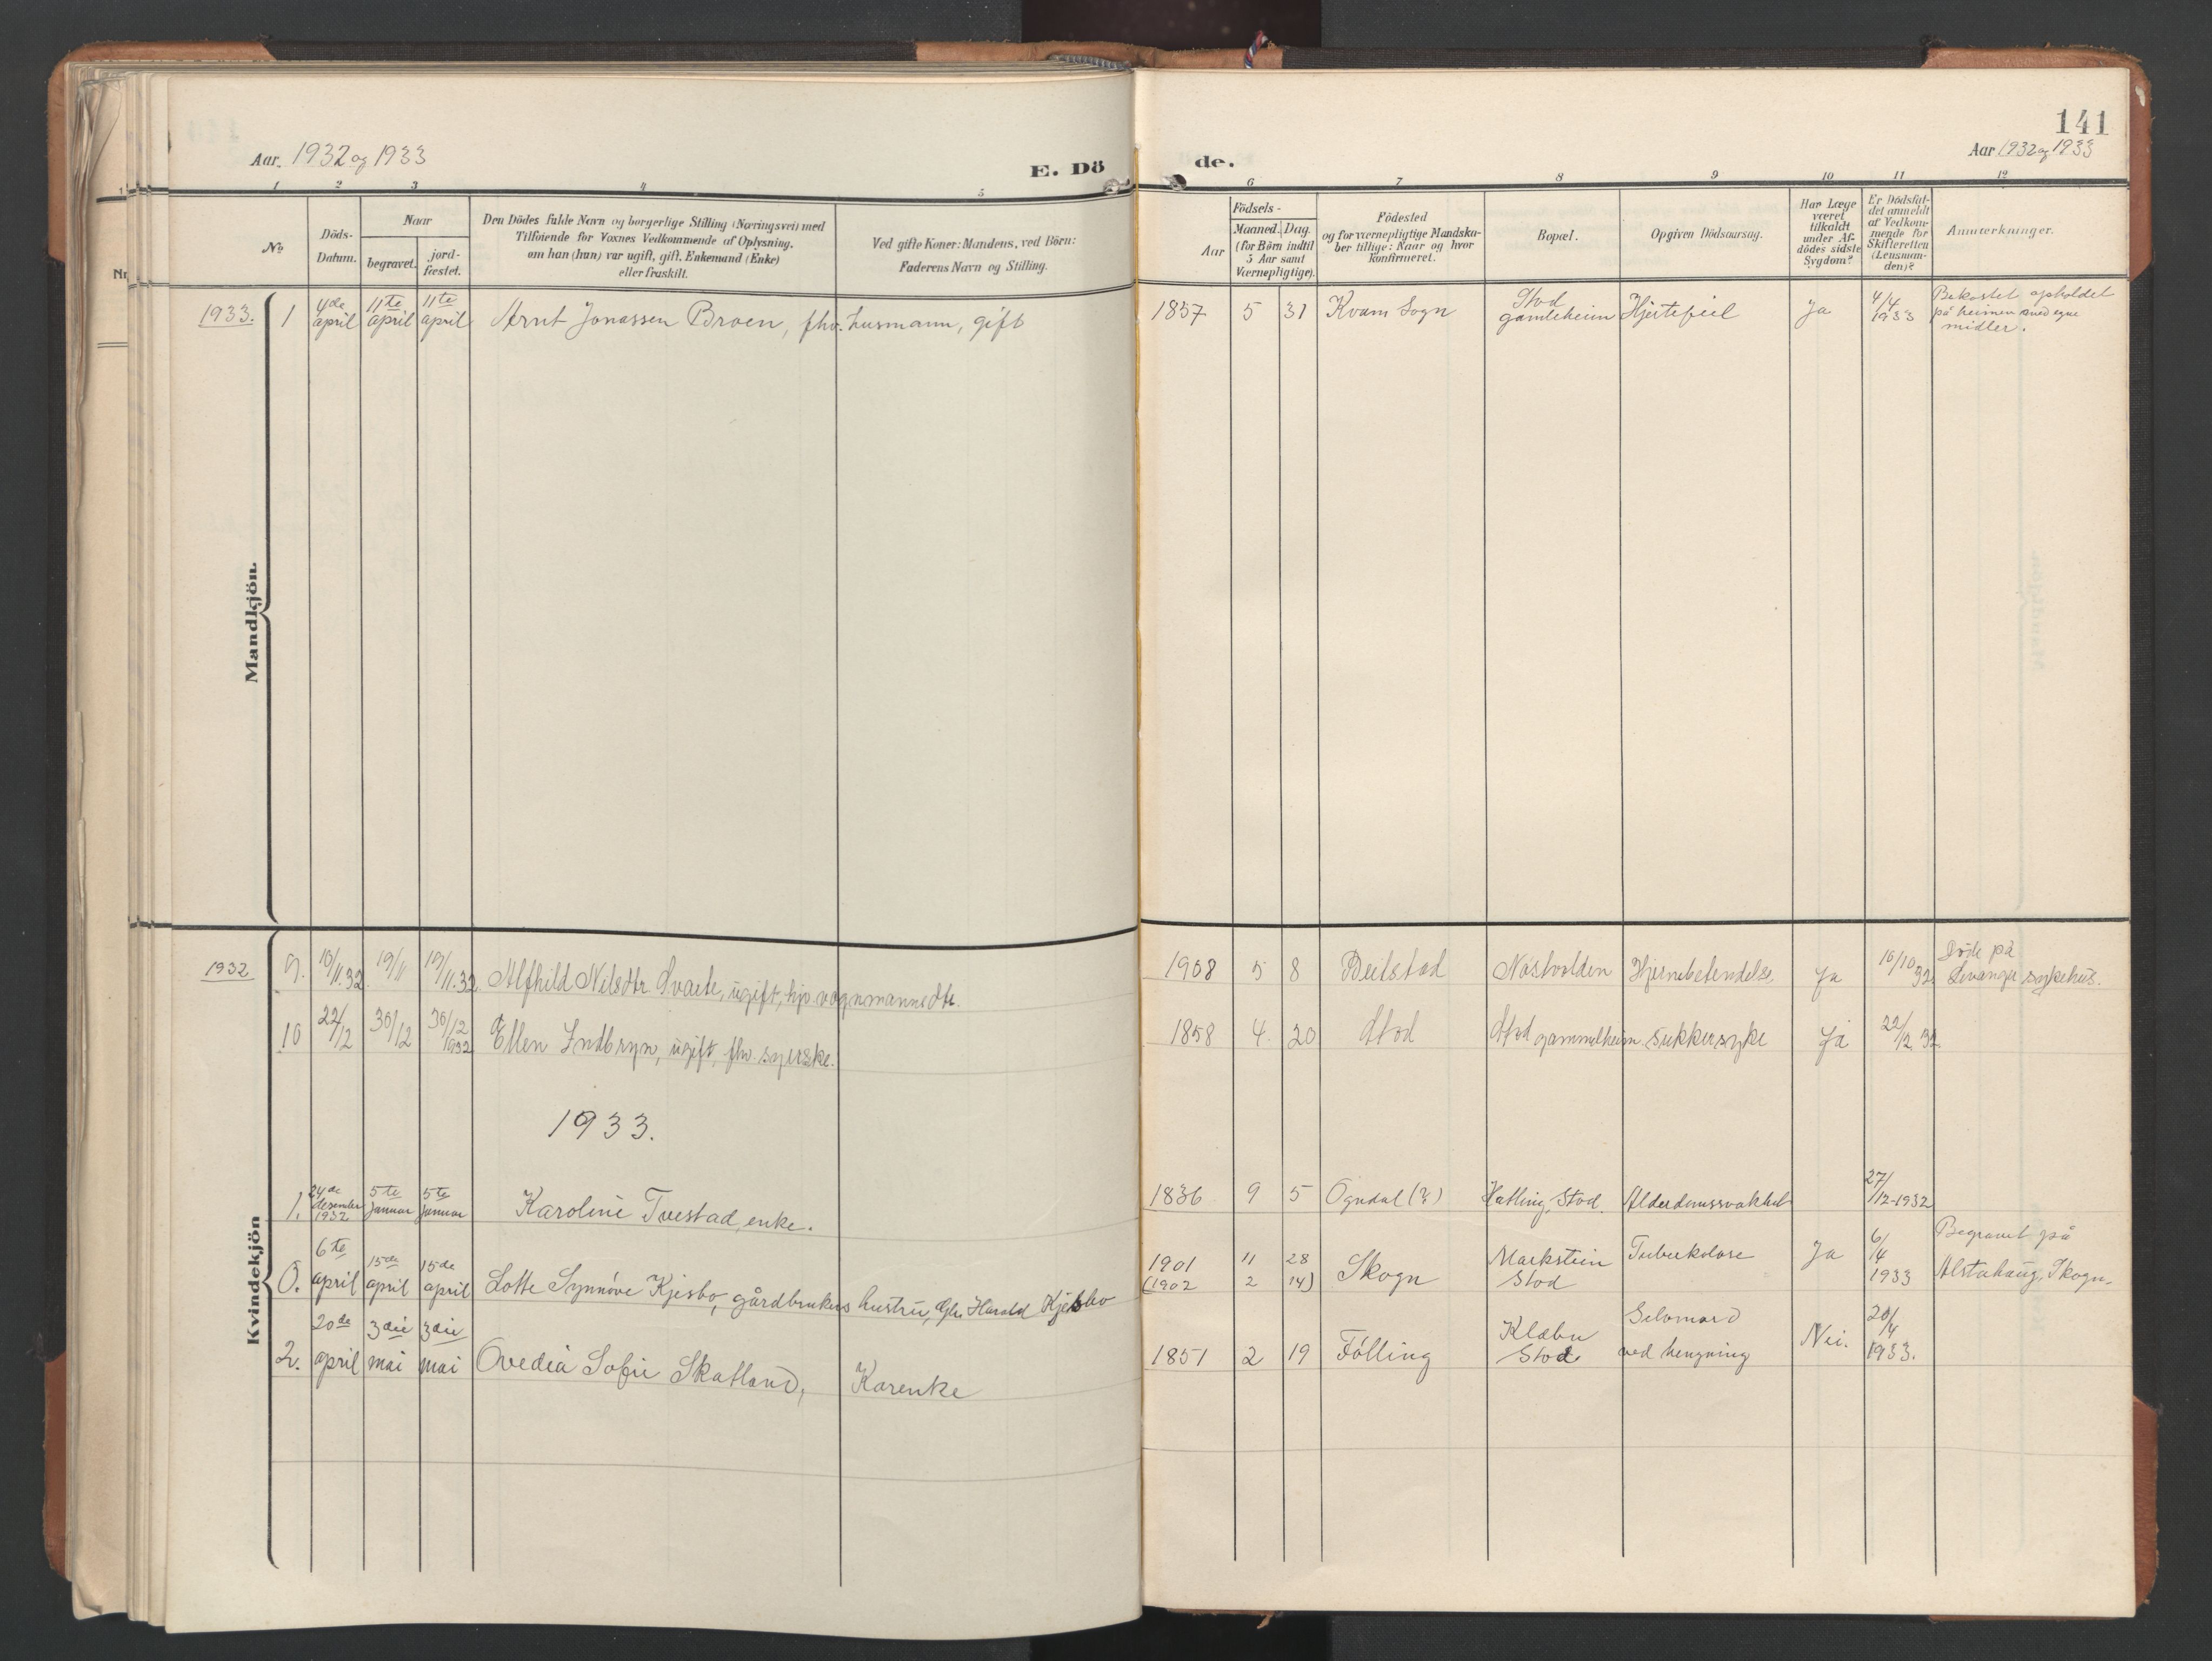 141
Aar. 1932 og 1933
E. Dö
de.
Aar 1932 og 1933
1 2 3 4 5
6 7 8 9 10 11 12
No
Döds-
Datum.
Naar
begravet.
jord-
fæstet.
Den Dödes fulde Navn og borgerlige Stilling (Næringsvei) med
Tilføiende for Voxnes Vedkommende af Oplysning,
om han (hun) var ugift, gift, Enkemand (Enke)
eller fraskilt.
Ved gifte Koner: Mandens, ved Börn:
Faderens Navn og Stilling.
Födsels-
Aar
Maaned. Dag.
(for Börn indtil
5 Aar samt
Værnepligtige).
Födested
og for værnepligtige Mandska-
ber tillige: Naar og hvor
konfirmeret.
Bopæl.
Opgiven Dödsaarsag.
Har Læge
været
tilkaldt
under Af-
dödes sidste
Sygdom?
Er Dödsfal-
det anmeldt
af Vedkom-
mende for
Skifteretten
(Lensman-
den)?
Anmærkninger.
Nr
Mandkjön.
1933. 1 4de april 11te april 11te april Arnt Jonassen Broen, fhv. husmann, gift 1857 5 31 Kvam Sogn Stod gamleheim Hjertefeil Ja 4/4 1933
Bekostet opholdet
på heimen med egne
midler.
Kvindekjön
1932 9. 10/11.32 19/11 19/11.32 Alfhild Nilsdtr. Svarte, ugift, hjv. vognmannsdtr. 1908 5 8 Beitstad Nøstvolden Hjernebetendelse Ja 10/10 32.
Døde på
Levanger sykehus.
10 22/12 30/12 30/12 1932 Ellen Indbryn, ugift, fhv. syerske. 1858 4 20 Stod Stod gammelheim Sukkersyke Ja 22/12.32.
1933.
1. 24de desember 1932 5te januar 5te januar Karoline Tvestad, enke. 1836 9 5 Ogndal (?) Hatling, Stod. Alderdomssvakhet 27/12-1932
0. 6te april 15de april 15de april Lotte Synnöve Kjesbo, gårdbrukers hustru, Gbr. Harald Kjesbo 1901 11 28 (1902 2 14) Skogn Markstein Stod Tuberkolose Ja 6/4 1933
Begravet på
Alstahaug, Skogn.
2. 20de april 3die mai 3die mai Ovedia Sofie Skatland, Karenke 1851 2 19 Følling Klæbu Stod Selvmord ved hengning Nei. 20/4 1933.